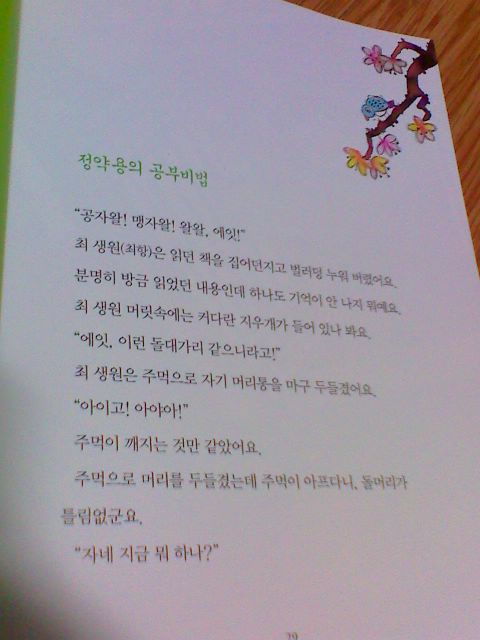 정약용의 공부비법
“공자왈! 맹자왈! 왈왈, 에잇!”
최 생원(최항)은 읽던 책을 집어던지고 벌러덩 누워 버렸어요.
분명히 방금 읽었던 내용인데 하나도 기억이 안 나지 뭐예요.
최 생원 머릿속에는 커다란 지우개가 들어 있나 봐요.
“에잇, 이런 돌대가리 같으니라고!”
최 생원은 주먹으로 자기 머리통을 마구 두들겼어요.
“아이고! 아야야!”
주먹이 깨지는 것만 같았어요.
주먹으로 머리를 두들겼는데 주먹이 아프다니, 돌머리가
틀림없군요.
“자네 지금 뭐 하나?”